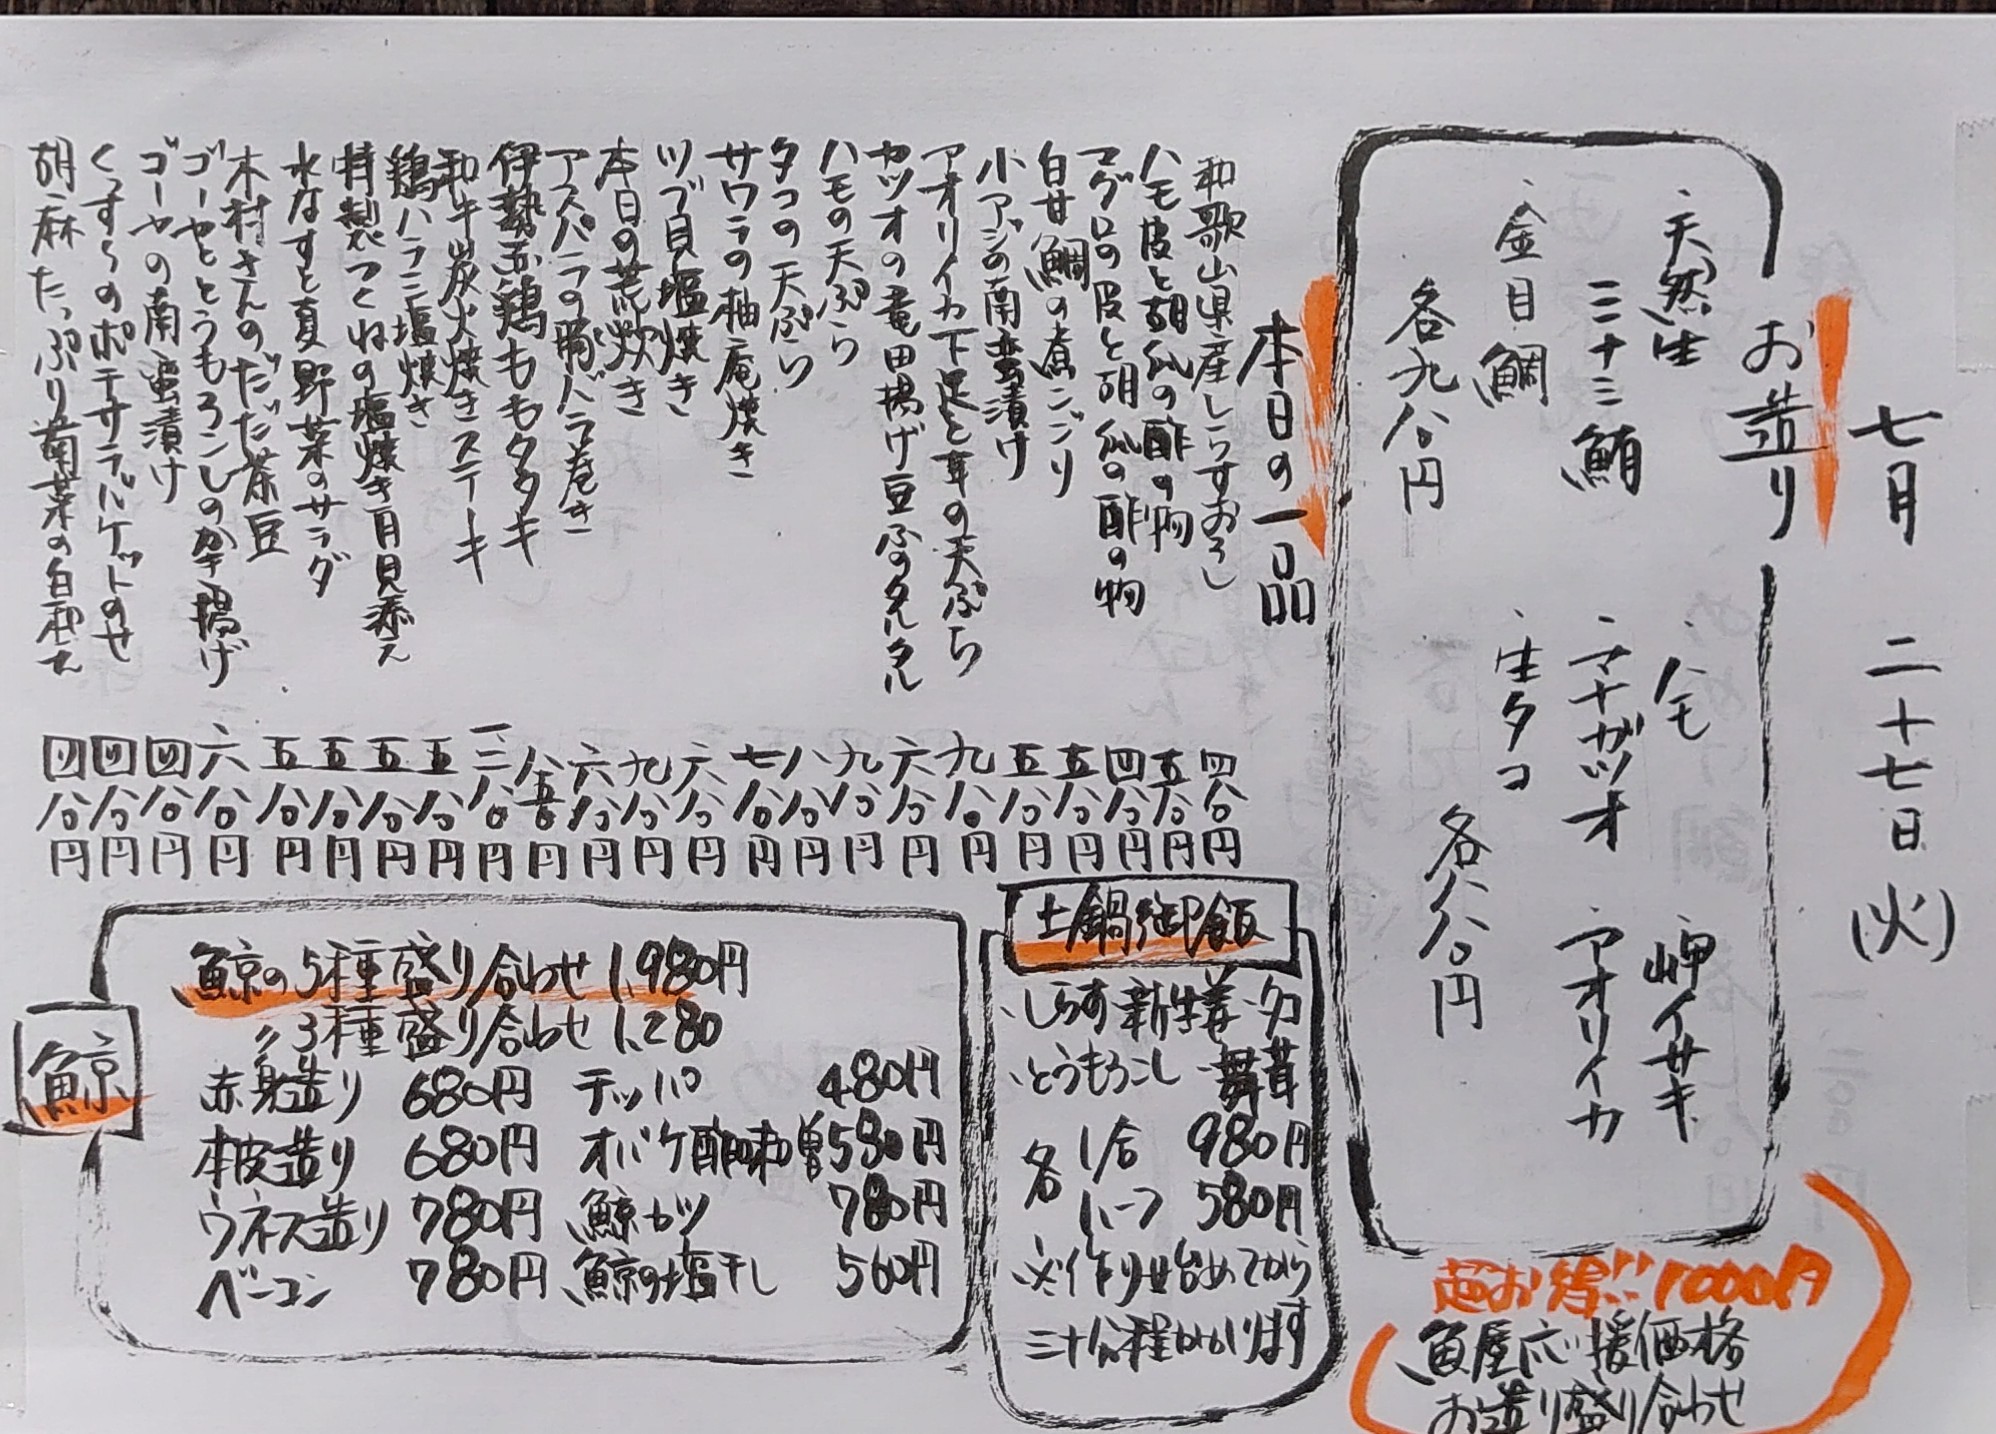 七月 二十七日 (火)
お造り
・天然生ミナミ鮪
・金目鯛
各九八〇円
・ハモ ・岬イサキ
・マナガツオ ・アオリイカ
・生タコ
各八八〇円
超お得!!1000円
魚屋応援価格
お造り盛り合わせ
本日の一品
和歌山県産しらすおろし 四八〇円
ハモ皮と胡瓜の酢の物 五八〇円
マグロの皮と胡瓜の酢の物 四八〇円
白甘鯛の煮こごり 五八〇円
小アジの南蛮漬け 五八〇円
アオリイカ下足と耳の天ぷら 九八〇円
カツオの竜田揚げ豆ふのタルタル 六八〇円
ハモの天ぷら 九八〇円
タコの天ぷら 八八〇円
サワラの柚庵焼き 七八〇円
ツブ貝塩焼き 六八〇円
本日の荒炊き 九八〇円
アスパラの豚バラ巻き 六八〇円
伊勢赤鶏ももタタキ 八五〇円
和牛炭火焼きステーキ 円
鶏ハラミ塩焼き 五八〇円
特製つくねの塩焼き月見添え 五八〇円
水なすと夏野菜のサラダ 五八〇円
木村さんのだだ茶豆 五八〇円
ゴーヤととうもろこしのかき揚げ 六八〇円
ゴーヤの南蛮漬け 四八〇円
くずしのポテサラバケットのせ 四八〇円
胡麻たっぷり菊菜の白和え 四八〇円
土鍋御飯
・しらす新生姜 ・タコ
・とうもろこし ・舞茸
各 1合 980円
ハーフ 580円
※作り始めてから
三十分程かかります
鯨
鯨の5種盛り合わせ 1,980円
〃3種盛り合わせ 1,280
赤身造り 680円 テッパ 480円
本皮造り 680円 オバケ酢味噌 580円
ウネス造り 780円 鯨カツ 780円
ベーコン 780円 鯨の塩干し 560円